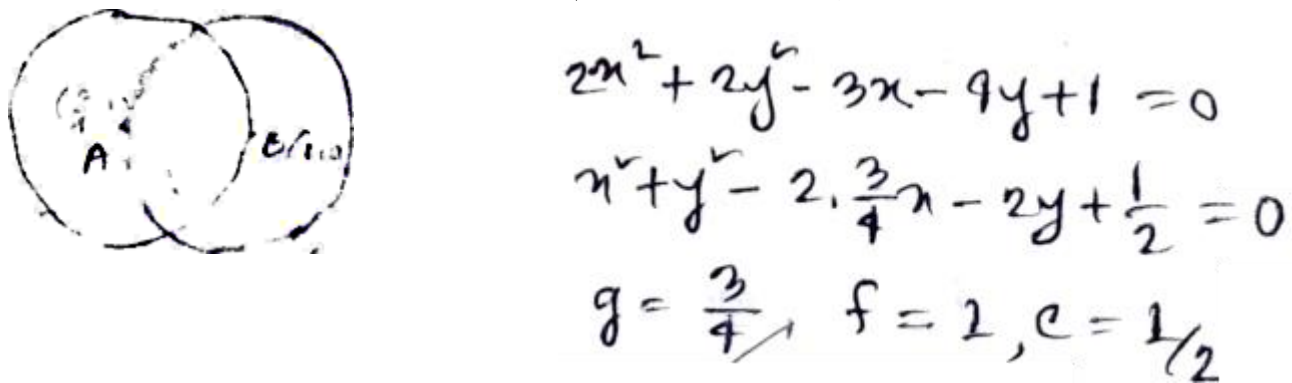 A
2x² + 2y² - 3x - 4y + 1 = 0
x² + y² - 2.3/4x - 2y + 1/2 = 0
g = 3/4, f = 1, c = 1/2